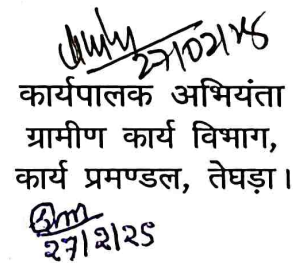 27/02/25
कार्यपालक अभियंता
ग्रामीण कार्य विभाग,
कार्य प्रमण्डल, तेघड़ा।
27/2/25